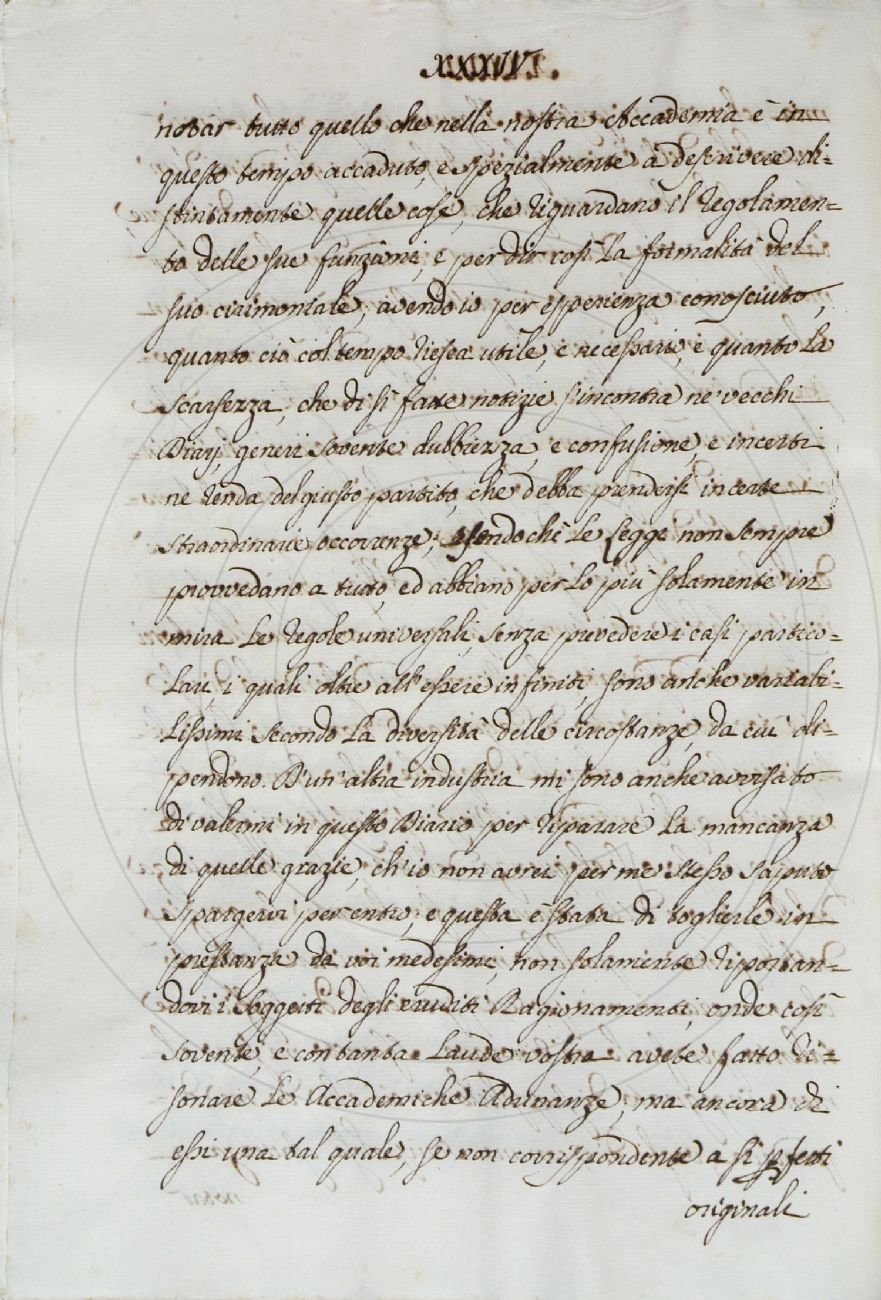 XXXXVI.
notar tutto quello che nella nostra Accademia è in
questo tempo accaduto, e spezialmente a descrivere di=
stintamente quelle cose, che riguardano il regolamen=
to delle sue funzioni, e per dir così la formalità del
suo cirimoniale, avendo io per esperienza conosciuto,
quanto ciò col tempo riesca utile, e necessario, e quanto la
scarsezza, che di sì fatte notizie s'incontra ne' vecchi
Diarj, generi sovente dubbiezza, e confusione, e incerti
ne renda del giusto partito, che debba prendersi in certe
straordinarie occorrenze; essendochè le Leggi non sempre
provvedano a tutto, ed abbiano per lo più solamente in
mira le regole universali, senza prevedere i casi partico=
lari, i quali oltre all'essere infiniti, sono anche variabi=
lissimi secondo la diversità delle circostanze, da cui di=
pendono. D'un'altra industria mi sono anche avvisato
di valermi in questo Diario per riparare la mancanza
di quelle grazie, ch'io non avrei per me stesso saputo
spargervi per entro; e questa è stata di toglierle in
prestanza da voi medesimi, non solamente riportan=
dovi i soggetti degli eruditi Ragionamenti, onde così
sovente, e con tanta laude vostra avete fatto ri=
sonare le Accademiche Adunanze; ma ancora di
essi una tal quale, se non corrispondente a sì pfetti
originali